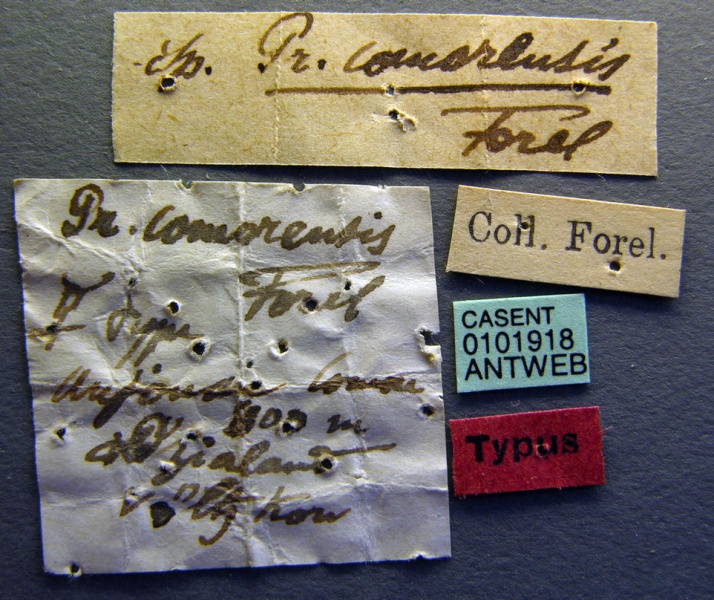 sp. Pr. comorensis
Forel
Pr. comorensis
Forel
☿ Type
Anjouan
m
Coll. Forel.
CASENT
0101918
ANTWEB
Typus